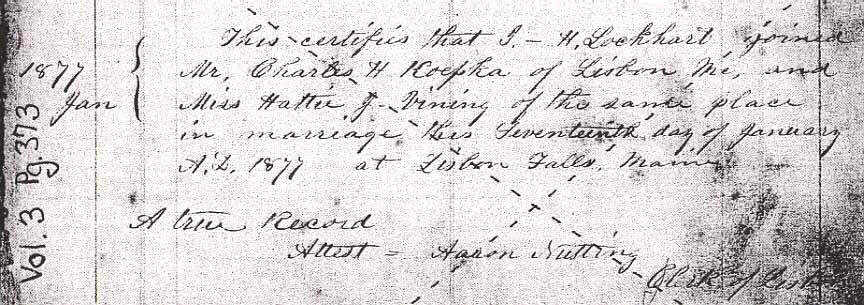 This certifies that I - H. Lockhart joined
1877 Mr. Charles H Koepka of Lisbon, Me, and
Jan Miss Hattie J. Vining of the same place
in marriage this Seventeenth day of January
A.D. 1877 at Lisbon Falls, Maine
A true Record
Attest = Aaron Nutting
Clerk of
Vol. 3 Pg. 373